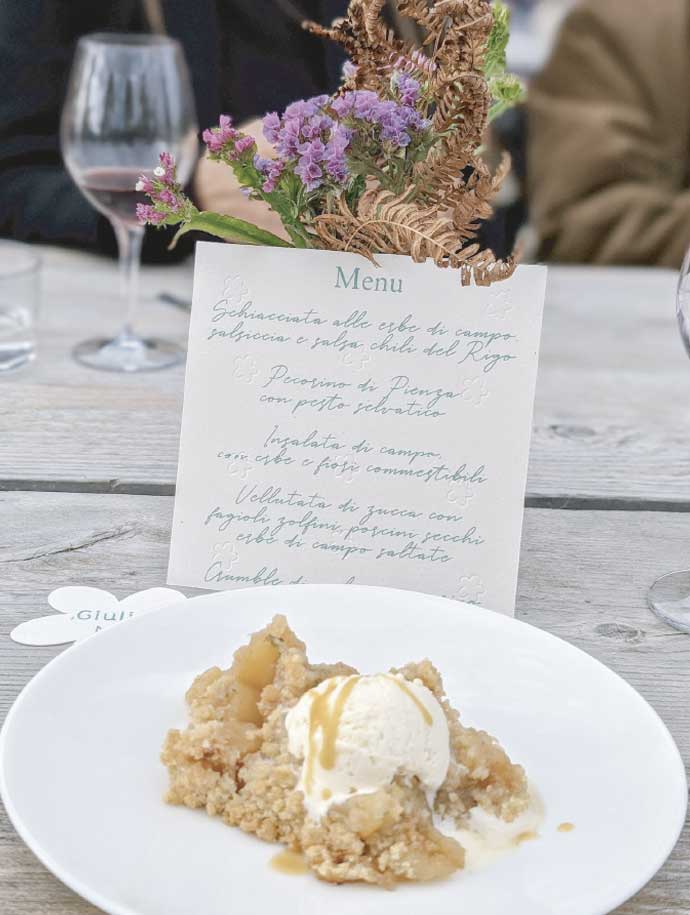 Menu
Schiacciata alle erbe di campo
salsiccia e salsa chili del Rigo
Pecorino di Pienza
con pesto selvatico
Insalata di campo,
con erbe e fiori commestibili
Vellutata di zucca con
fagioli zolfini, porcini secchi
erbe di campo saltate
Crumble